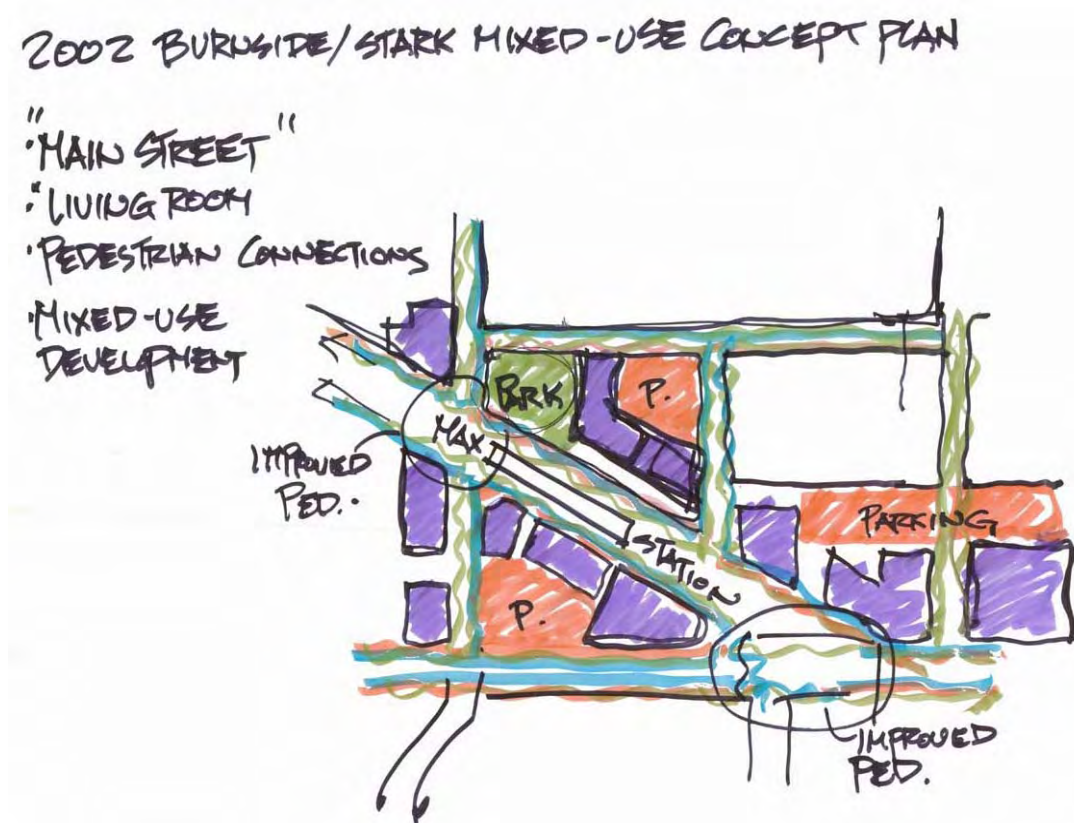 2002 BURNSIDE/STARK MIXED-USE CONCEPT PLAN
"
·MAIN STREET"
·"LIVING ROOM
·PEDESTRIAN CONNECTIONS
·MIXED-USE
DEVELOPMENT
PARK
P.
MAX
IMPROVED
PED.
STATION
PARKING
P.
IMPROVED
PED.